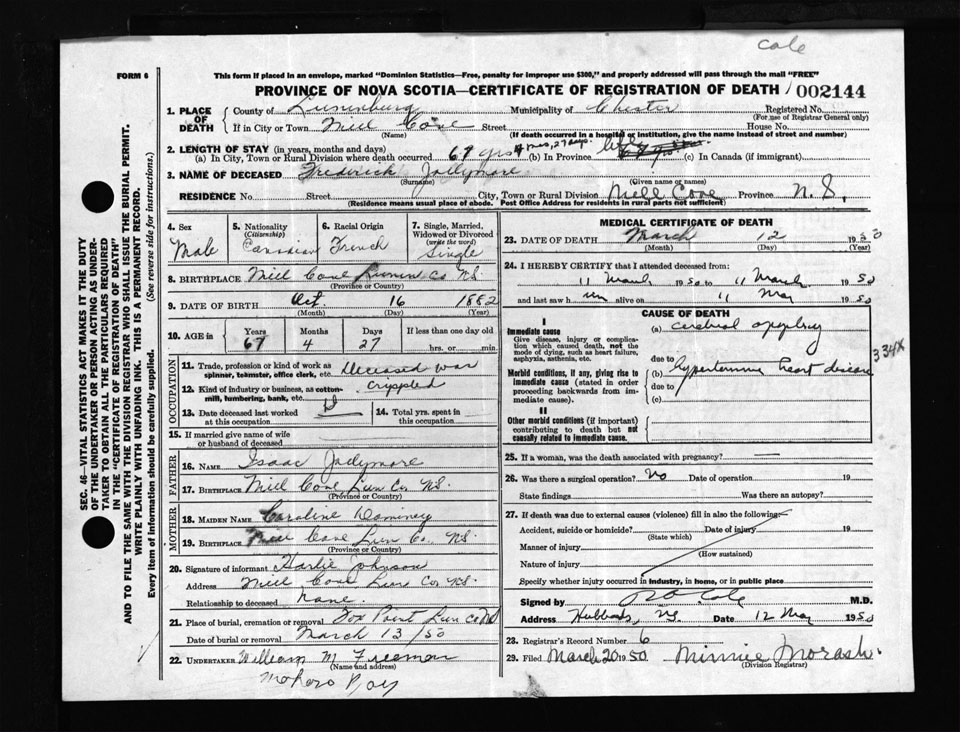 Cole
FORM 6
This form if placed in an envelope, marked "Dominion Statistics—Free, penalty for improper use $300," and properly addressed will pass through the mail "FREE"
PROVINCE OF NOVA SCOTIA—CERTIFICATE OF REGISTRATION OF DEATH 002144
1. PLACE OF DEATH County of Lunenburg Municipality of Chester Registered No.
(For use of Registrar General only)
If in City or Town Mill Cove Street House No.
(Name) (If death occurred in a hospital or institution, give the name instead of street and number)
2. LENGTH OF STAY (in years, months and days)
(a) In City, Town or Rural Division where death occurred 67 yrs 4 mos, 27 days. (b) In Province life (c) In Canada (if immigrant)
3. NAME OF DECEASED Frederick Jollymore
(Surname) (Given name or names)
RESIDENCE No. Street City, Town or Rural Division Mill Cove Province N.S.
(Residence means usual place of abode. Post Office Address for residents in rural parts not sufficient)
4. Sex Male
5. Nationality (Citizenship) Canadian
6. Racial Origin French
7. Single, Married, Widowed or Divorced (write the word) Single
8. BIRTHPLACE Mill Cove Lunen Co NS
(Province or Country)
9. DATE OF BIRTH Oct. 16 1882
(Month) (Day) (Year)
10. AGE in Years 67 Months 4 Days 27 If less than one day old
hrs. or min.
OCCUPATION
11. Trade, profession or kind of work as spinner, teamster, office clerk, etc. Deceased was
12. Kind of industry or business, as cotton-mill, lumbering, bank, etc. crippled
13. Date deceased last worked at this occupation
14. Total yrs. spent in this occupation
15. If married give name of wife or husband of deceased
FATHER
16. NAME Isaac Jollymore
17. BIRTHPLACE Mill Cove Lun Co NS.
(Province or Country)
MOTHER
18. MAIDEN NAME Caroline Dominey
19. BIRTHPLACE Mill Cove Lun Co. NS.
(Province or Country)
20. Signature of informant Harlie Johnson
Address Mill Cove Lun Co NS.
Relationship to deceased none.
21. Place of burial, cremation or removal Fox Point Lun Co NS
Date of burial or removal March 13/50
22. UNDERTAKER William M Freeman
(Name and address)
Mahone Bay
MEDICAL CERTIFICATE OF DEATH
23. DATE OF DEATH March 12 1950
(Month) (Day) (Year)
24. I HEREBY CERTIFY that I attended deceased from:
11 March 1950 to 11 March 1950
and last saw him alive on 11 Mar 1950
CAUSE OF DEATH
I
Immediate cause
Give disease, injury or complication which caused death, not the mode of dying, such as heart failure, asphyxia, asthenia, etc.
(a) cerebral apoplexy
due to
Morbid conditions, if any, giving rise to immediate cause (stated in order proceeding backwards from immediate cause).
(b) hypertensive heart disease
due to
(c)
334X
II
Other morbid conditions (if important) contributing to death but not causally related to immediate cause.
25. If a woman, was the death associated with pregnancy? —
26. Was there a surgical operation? No Date of operation 19
State findings Was there an autopsy?
27. If death was due to external causes (violence) fill in also the following:
Accident, suicide or homicide? Date of injury 19
(State which)
Manner of injury
(How sustained)
Nature of injury
Specify whether injury occurred in industry, in home, or in public place
Signed by Cole M.D.
Address Hubbards, NS Date 12 Mar 1950
28. Registrar's Record Number 6
29. Filed March 20 1950 Minnie Morash.
(Division Registrar)
SEC. 46—VITAL STATISTICS ACT MAKES IT THE DUTY
OF THE UNDERTAKER OR PERSON ACTING AS UNDER-
TAKER TO OBTAIN ALL THE PARTICULARS REQUIRED
IN THE "CERTIFICATE OF REGISTRATION OF DEATH"
AND TO FILE THE SAME WITH THE DIVISION REGISTRAR WHO SHALL ISSUE THE BURIAL PERMIT.
WRITE PLAINLY WITH UNFADING INK. THIS IS A PERMANENT RECORD.
Every item of information should be carefully supplied. (See reverse side for instructions.)